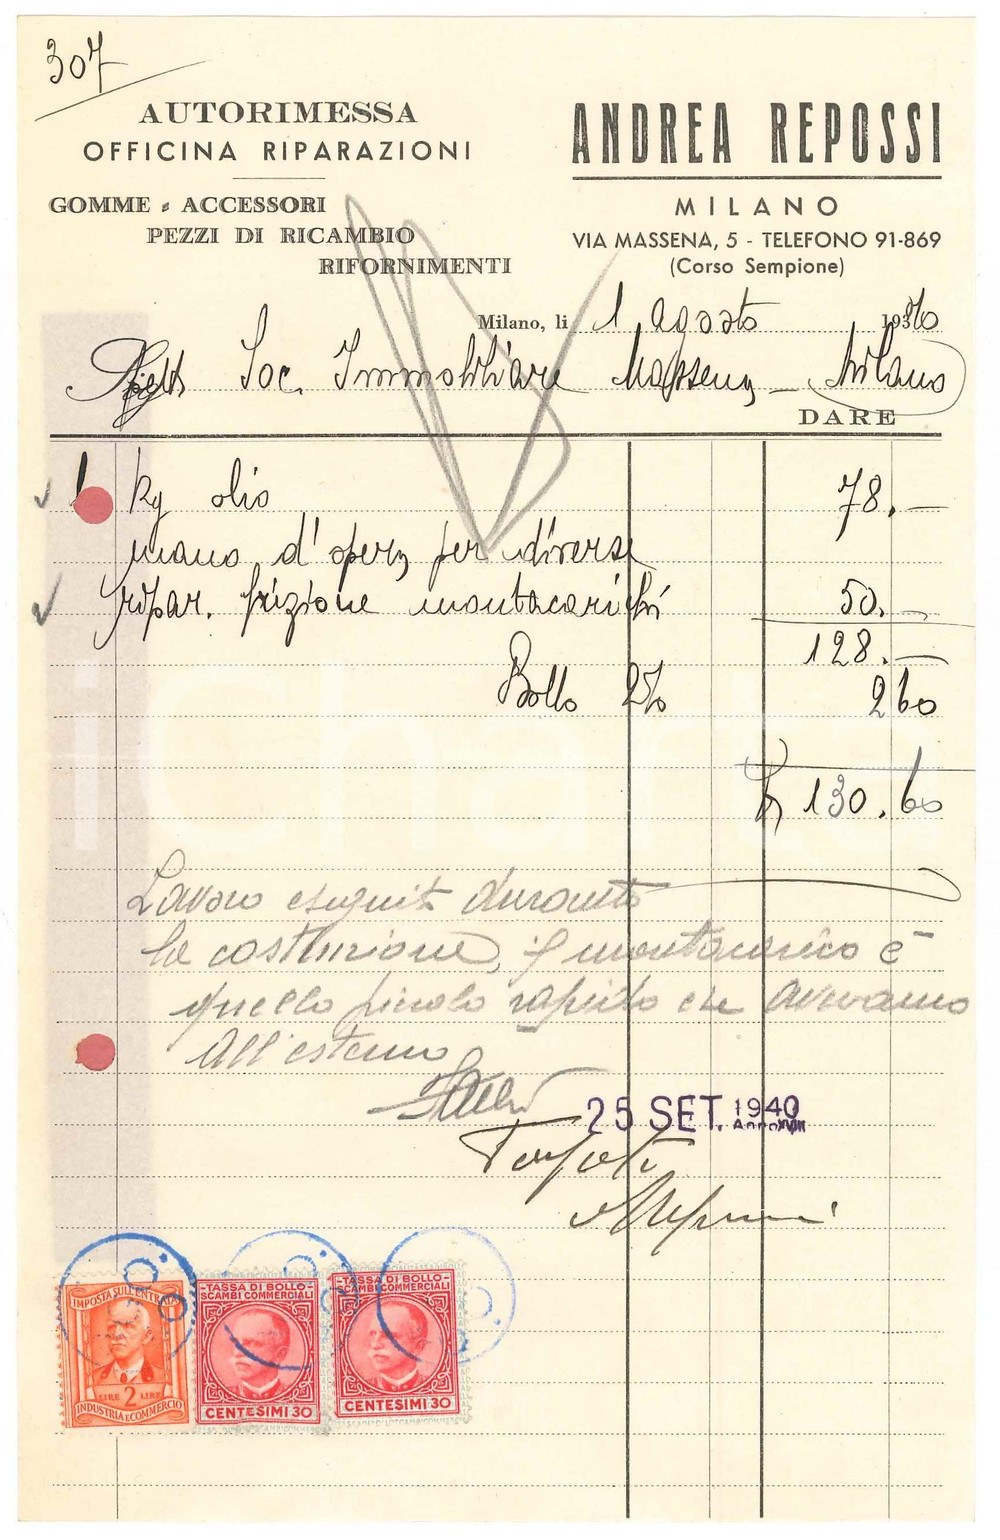 307
AUTORIMESSA
OFFICINA RIPARAZIONI
GOMME - ACCESSORI
PEZZI DI RICAMBIO
RIFORNIMENTI
ANDREA REPOSSI
MILANO
VIA MASSENA, 5 - TELEFONO 91-869
(Corso Sempione)
Milano, li 1 Agosto 1940
Spett Soc. Immobiliare Massena - Milano
DARE
1 kg olio 78.—
mano d'opera per diverse
ripar. frizione montacarichi 50.—
128.—
Bollo 2% 2 60
L 130.60
Lavoro eseguito durante
la costruzione, il montacarico è
quello piccolo rapido che avevamo
all'esterno
25 SET. 1940
Anno XVIII
IMPOSTA SULL'ENTRATA
LIRE 2 LIRE
INDUSTRIA E COMMERCIO
TASSA DI BOLLO
SCAMBI COMMERCIALI
CENTESIMI 30
TASSA DI BOLLO
SCAMBI COMMERCIALI
CENTESIMI 30
iCharta